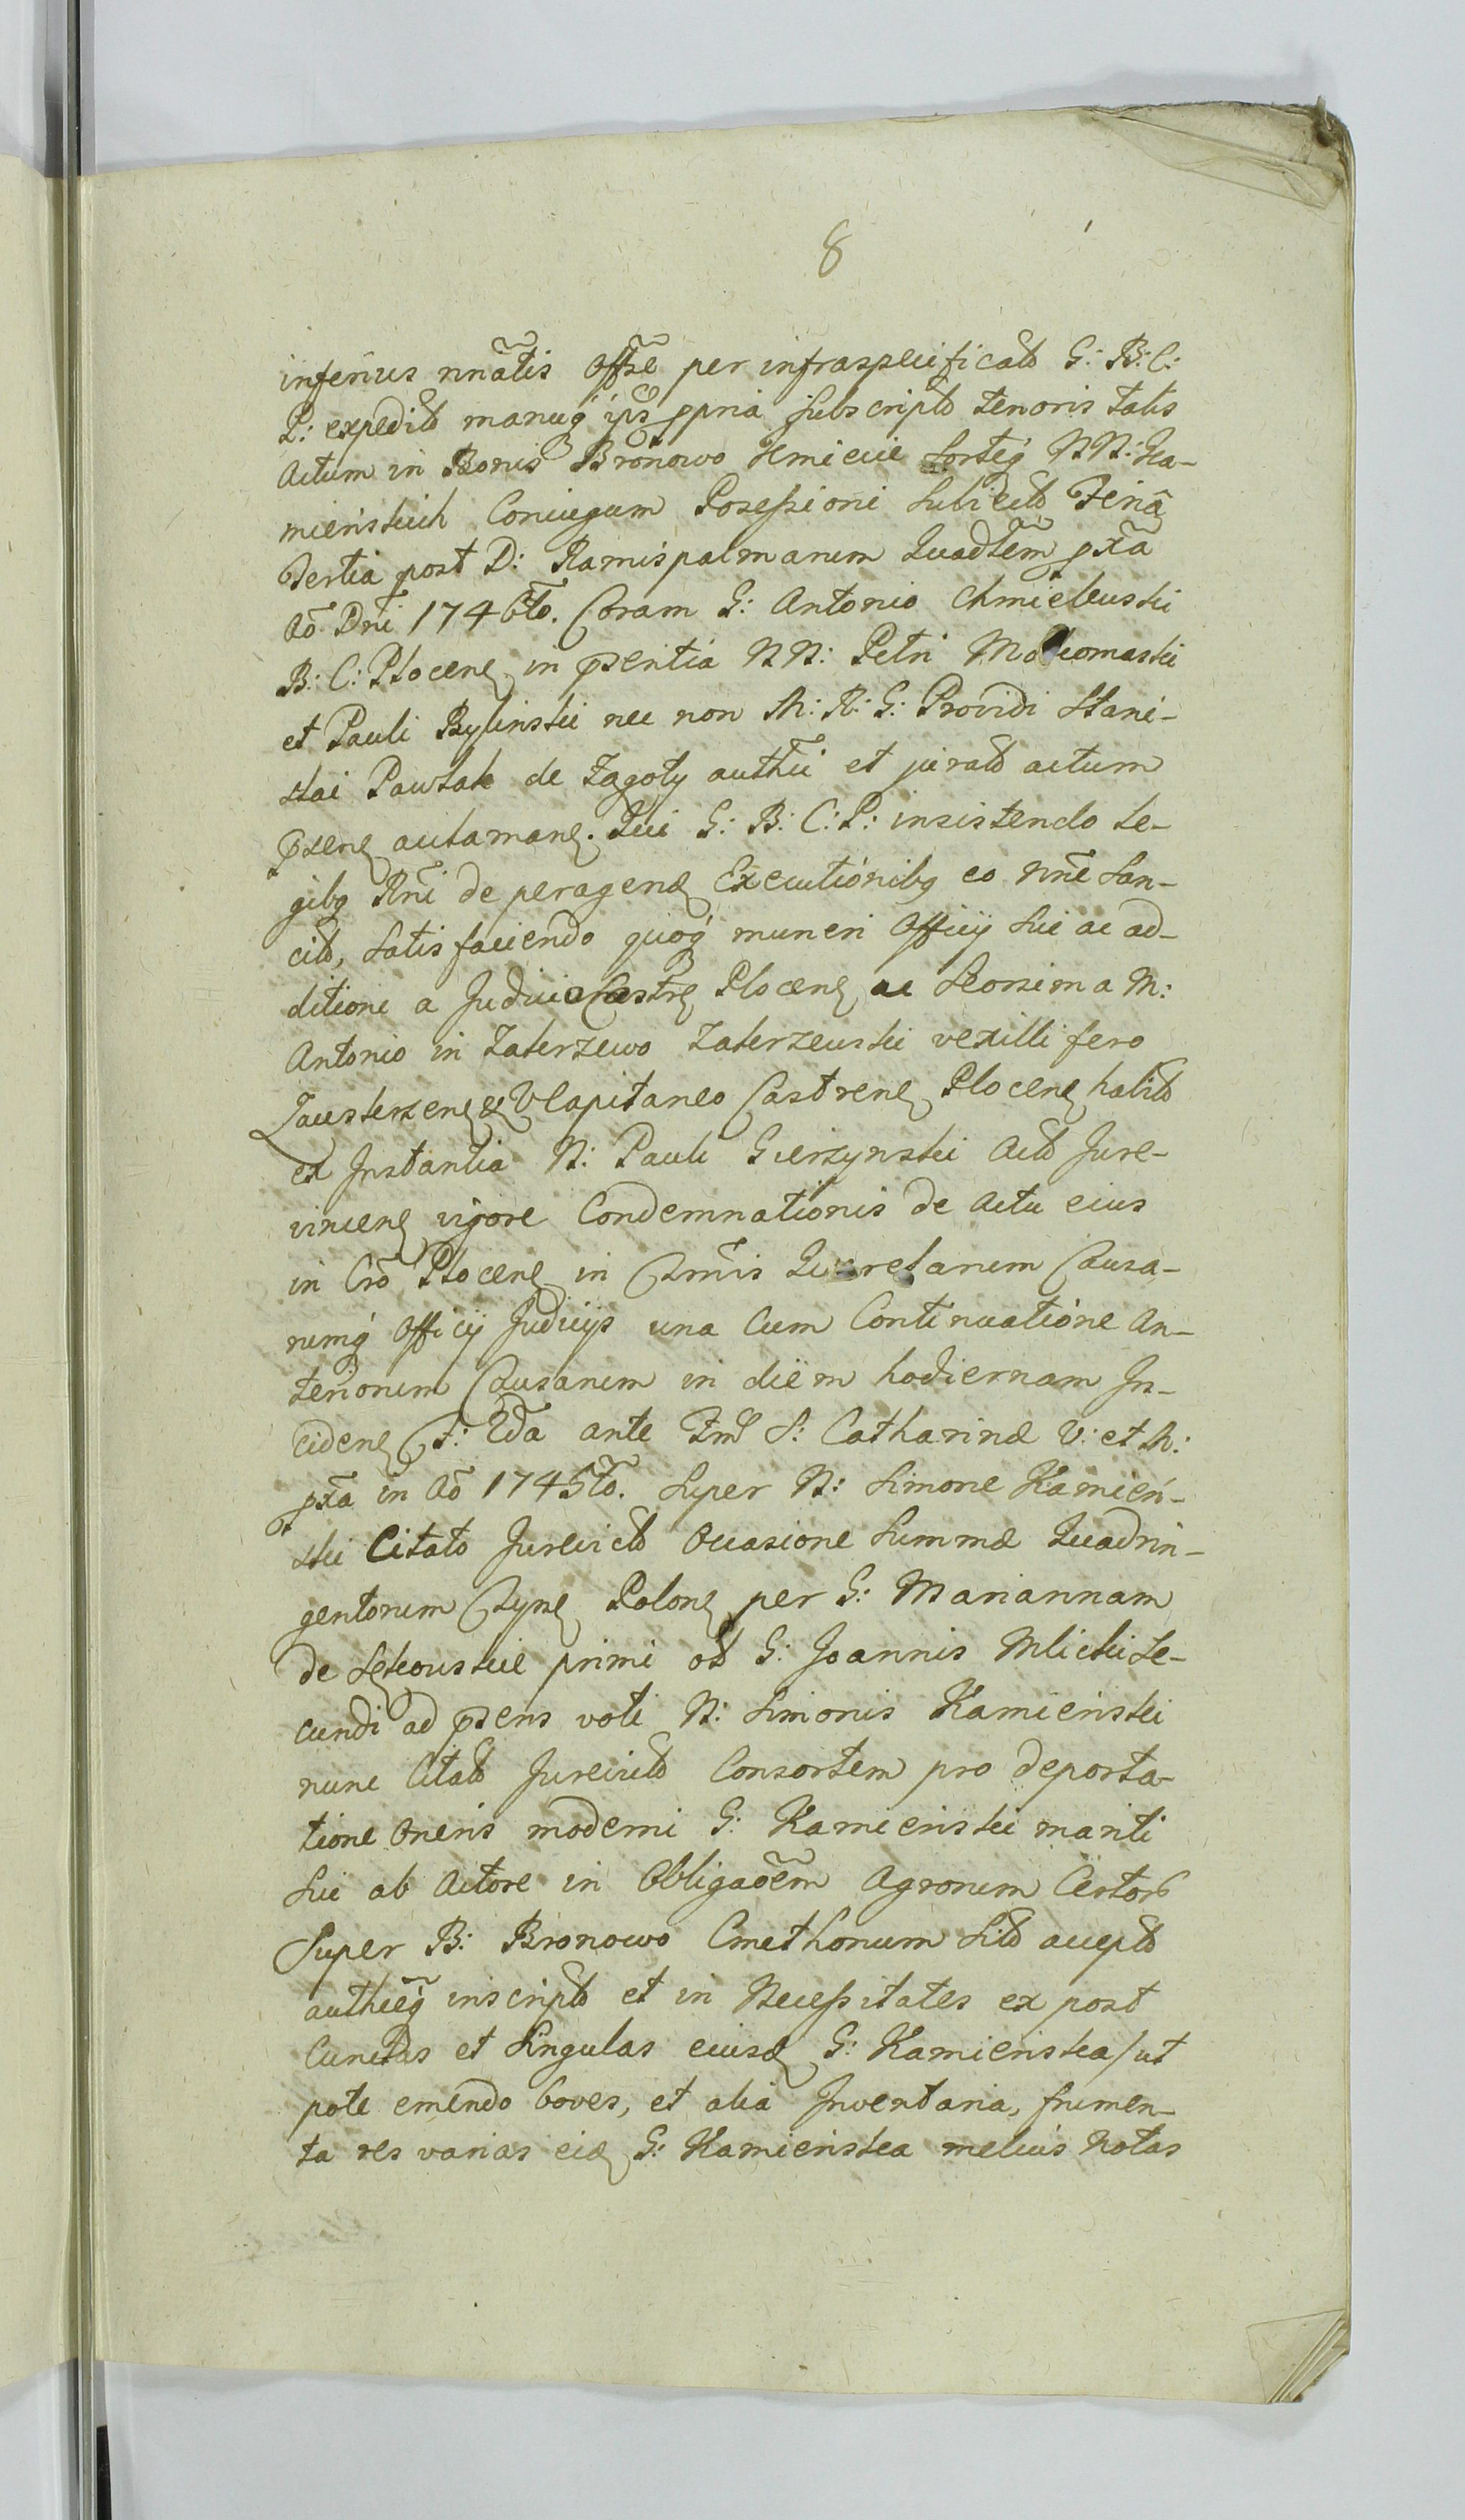 8
inferius nnãtis Offse per infraspecificato G: B: C:
P: expedito manuq ips ppria subscripto tenoris talis
Actum in Bonis Bronowo Kmiecie Sorteq NN: Ka-
mienskich Coniugum Possessioni subiecto Feria
Tertia post D: Ramispalmarum Quadlem pxa
Aō Dni 1746to. Coram G: Antonio Chmielewski
B: C: Plocens in psentia NN: Petri
et Pauli Bylinski nec non M: R: G: Providi Stani-
slai Pawlak de Zagoty authci et jurato actum
psens acclamans. Qui G: B: C: P: insistendo le-
gibq Rni de peragend Executionibq eo nne San-
cito, satisfaciendo quoq muneri Officij sui ac ad-
ditioni a Judicio Castre Plocens ac M:
Antonio in Zakrzewo Zakrzewski vexillifero
VCapitaneo Castrens Plocens habito
ex Instantia N: Pauli Gierzynski Acto Jure-
vincens vigore Condemnationis de Actu eius
in Cro Plocens in Termis Querelarum Causa-
rumq Officij Judicijs una Cum Continuatione An-
teriorum Causarum in diem hodiernam In-
cidens F: 2da ante Fms S: Catharinæ V: et M:
pxa in Aō 1745to. super N: Simone Kamień-
ski Citato Jurevicto Occasione Summæ Quadrin-
gentorum Tyns Polons per G: Mariannam
de Sękowskie primi olt G: Joannis Mlicki Se-
cundi ad psens voti N: Simonis Kamieński
nunc Citato Jurevicto Consortem pro deporta-
tione Oneris moderni G: Kamieński mariti
sui ab Actore in Obligaōem Agrorum Certor
super B: Bronowo Cmethonum Sito accepto
autheeq inscripto et in Necessitates ex post
Cunctas et Singulas eiusd G: Kamienska /ut
pote emendo boves, et alia Inventaria, frumen-
ta res varias eid G: Kamienska melius notas